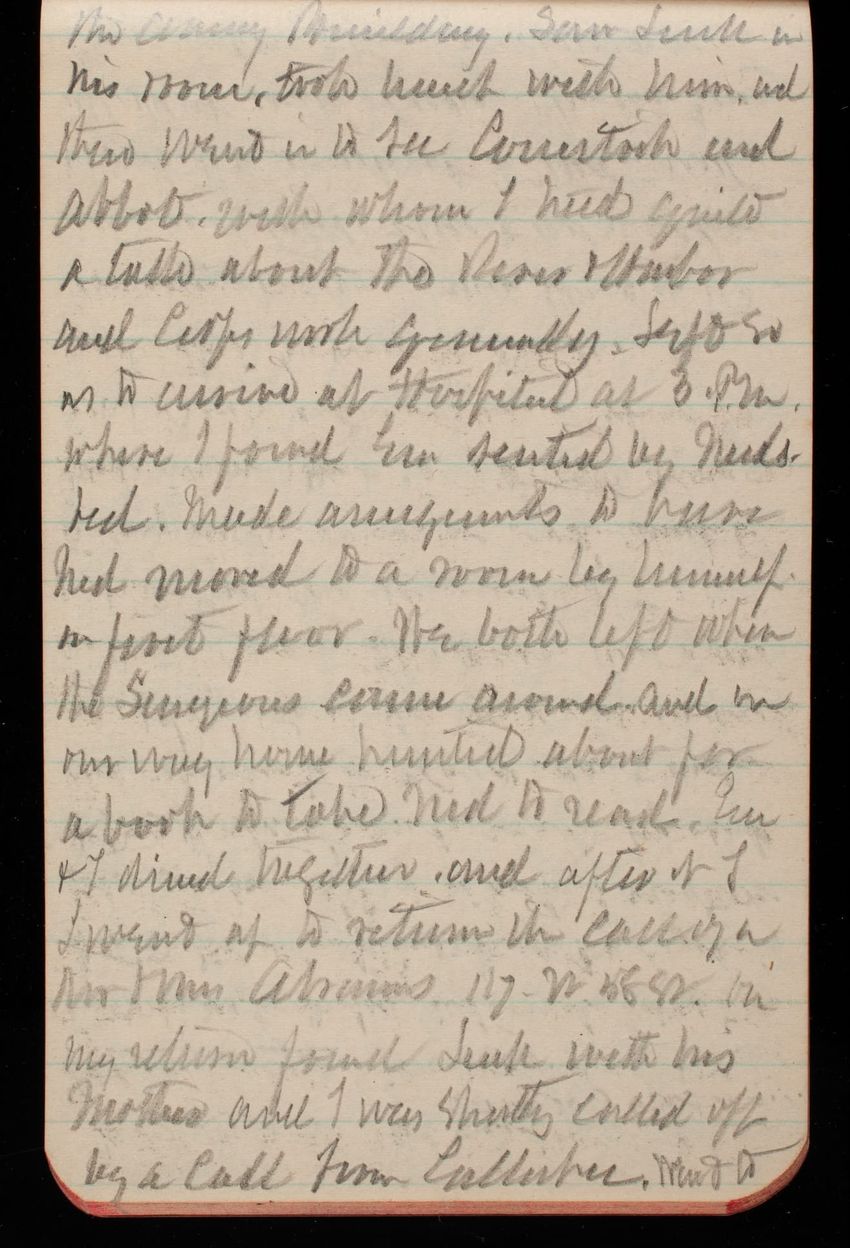 the Army Building. Saw Turk in
his room, took lunch with him, and
then went in to see Comstock and
Abbot. with whom I had quite
a talk about the River & Harbor
and Corps work generally. Left so
as to arrive at Hospital at 3 P.M.
where I found Em seated by Neds
bed. Made arrangements to have
Ned moved to a room by himself
on first floor. We both left when
the Surgeons came around. and on
our way home hunted about for
a book to take Ned to read. Em
& I dined together. and after it I
I went up to return the call of a
Mr & Mrs Abrams 117 W 58 St. On
my return found Turk with his
Mother and I was shortly called off
by a call from. Went to